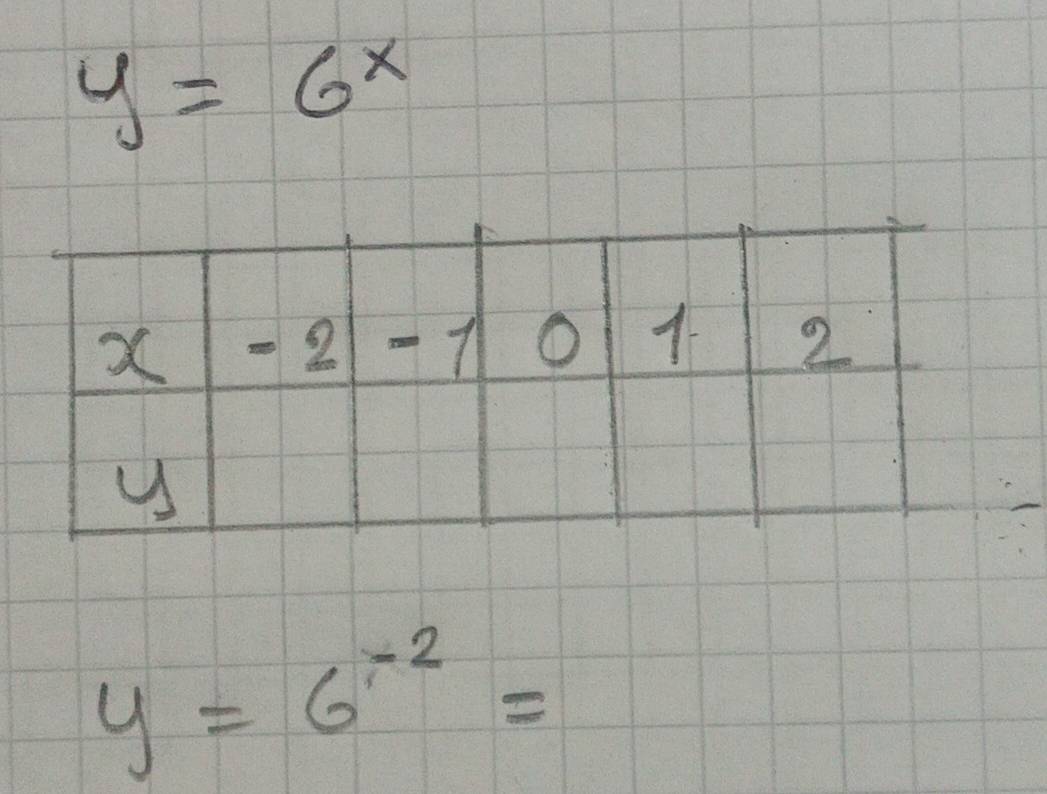 y = 6ˣ
x -2 -1 0 1 2
y
y = 6⁻² =